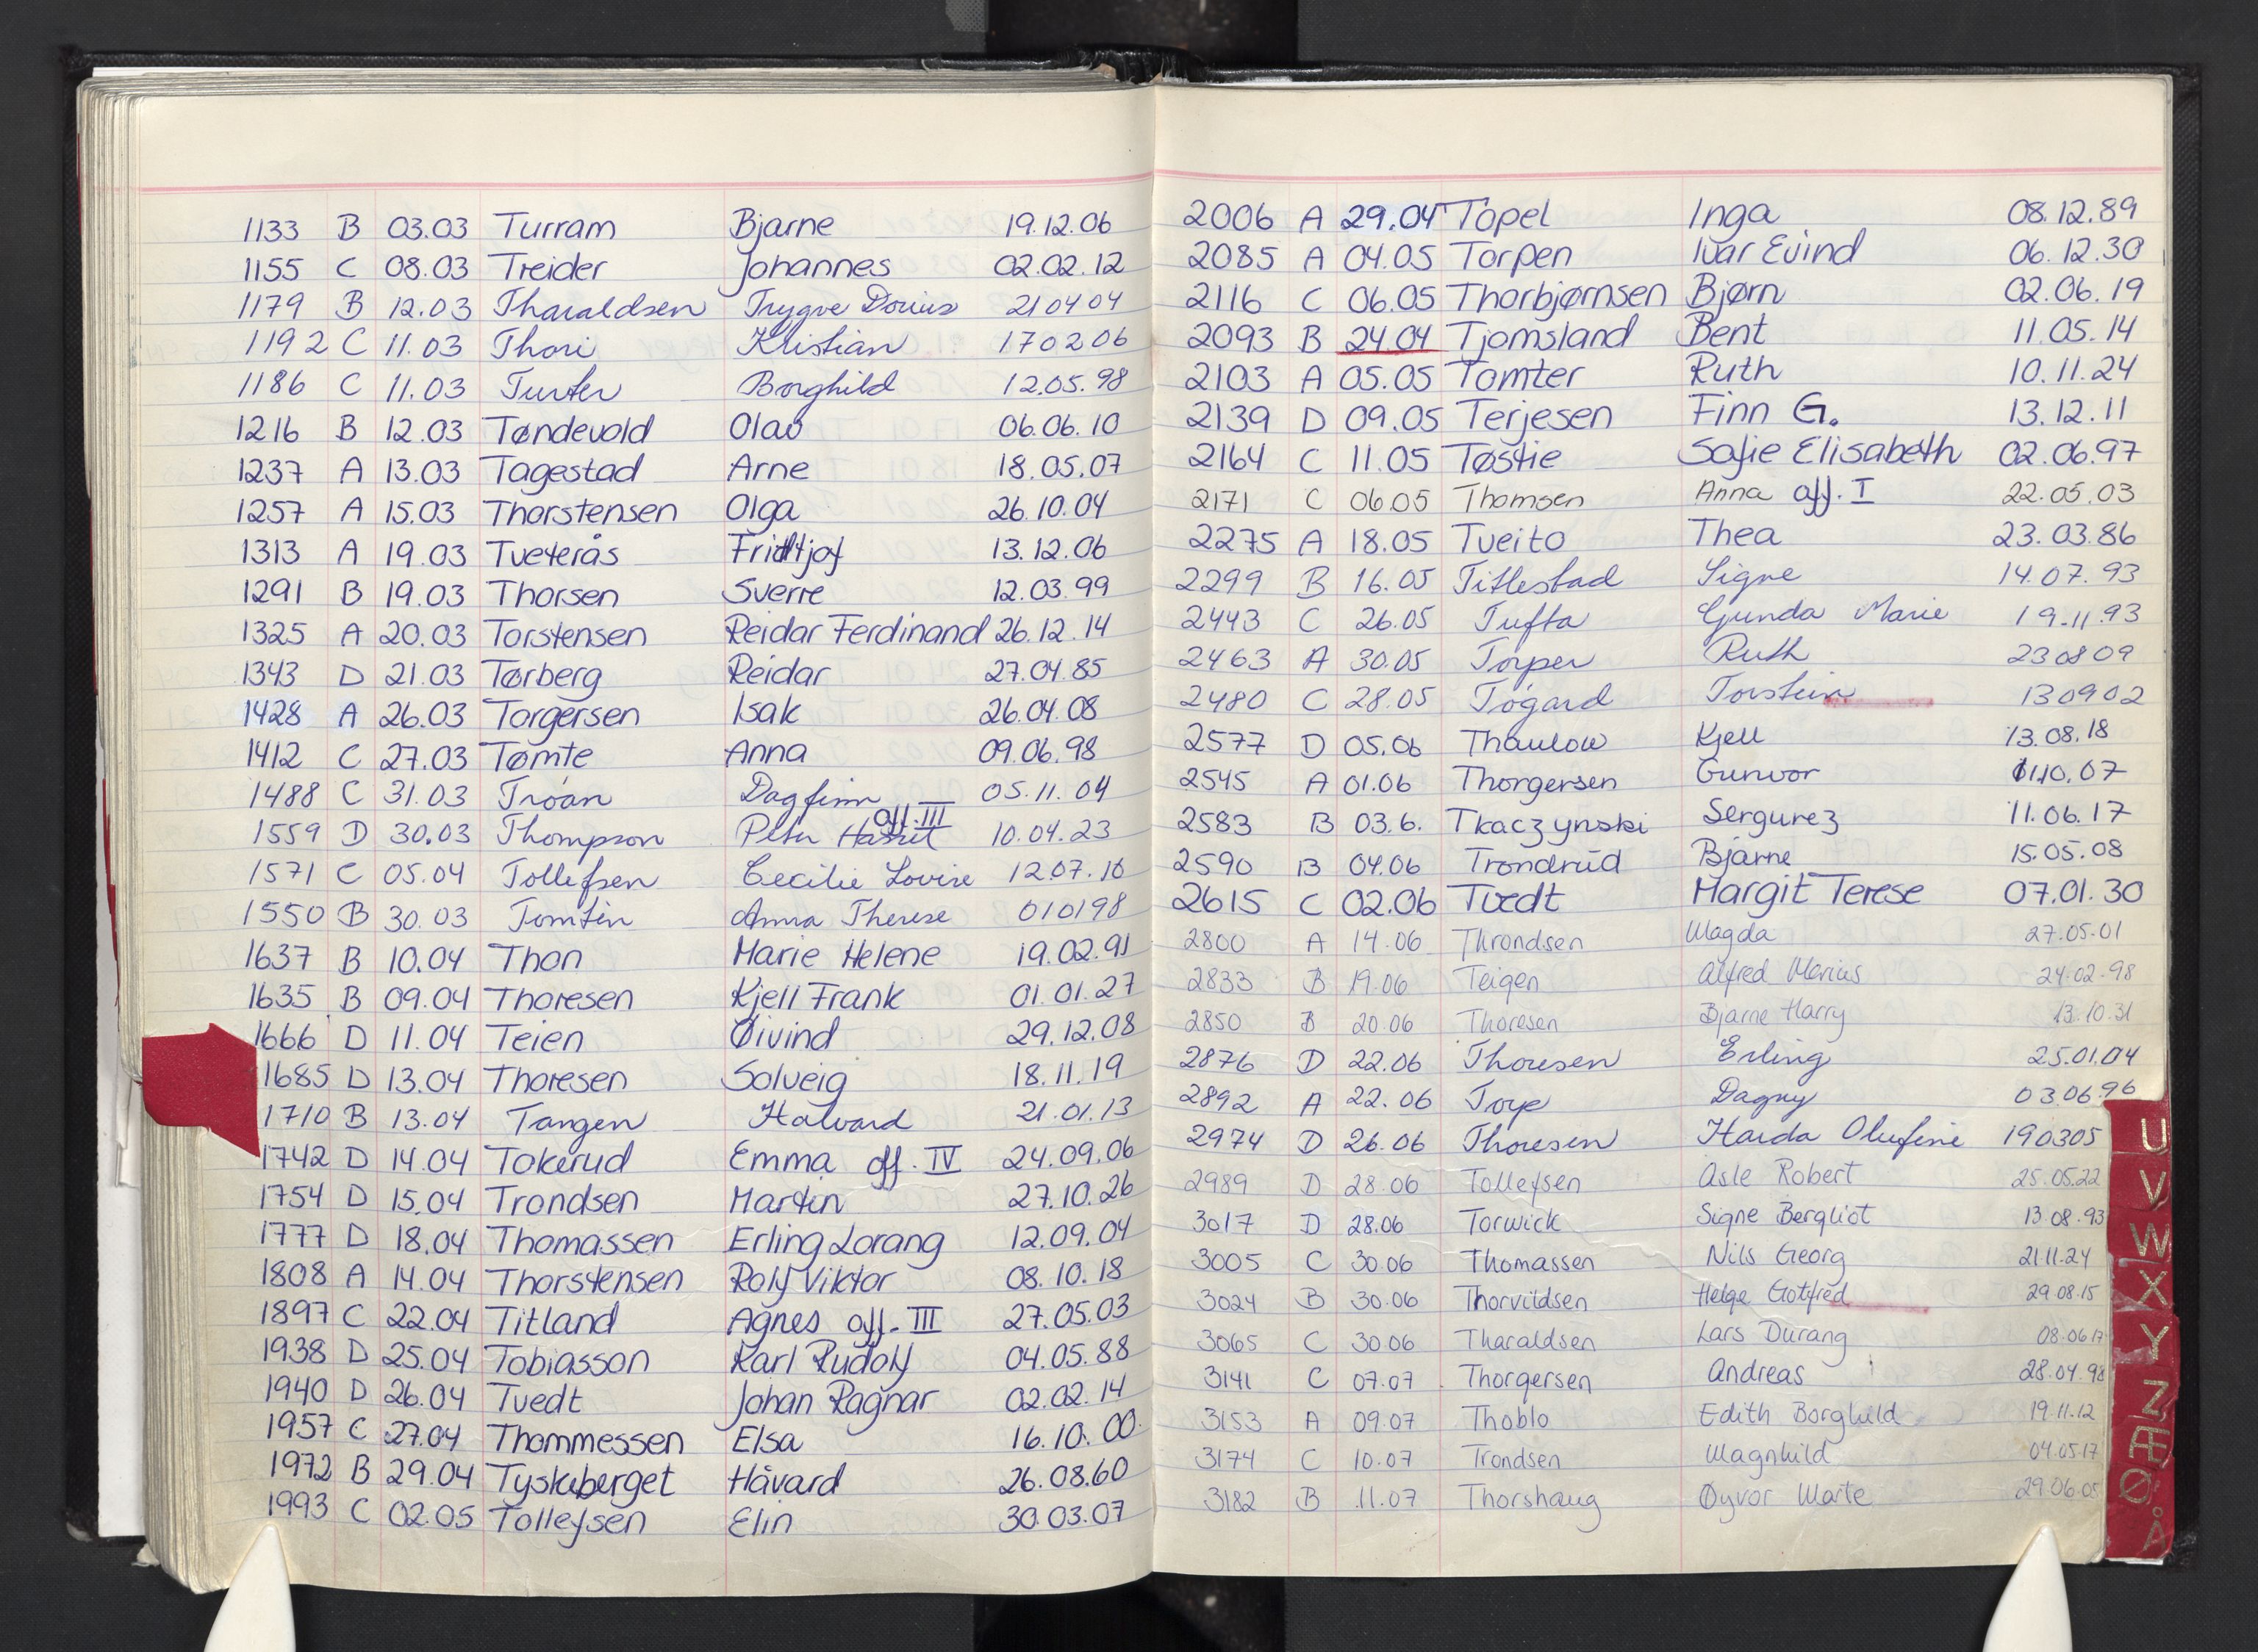 1133 B 03.03 Turram Bjarne 19.12.06
1155 C 08.03 Treider Johannes 02.02.12
1179 B 12.03 Tharaldsen Trygve Dorius 210404
1192 C 11.03 Thori Kristian 170206
1186 C 11.03 Turter Borghild 12.05.98
1216 B 12.03 Tøndevold Olav 06.06.10
1237 A 13.03 Tagestad Arne 18.05.07
1257 A 15.03 Thorstensen Olga 26.10.04
1313 A 19.03 Tveterås Fridtjof 13.12.06
1291 B 19.03 Thorsen Sverre 12.03.99
1325 A 20.03 Torstensen Reidar Ferdinand 26.12.14
1343 D 21.03 Tørberg Reidar 27.04.85
1428 A 26.03 Torgersen Isak 26.04.08
1412 C 27.03 Tømte Anna 09.06.98
1488 C 31.03 Troan Dagfinn 05.11.04
1559 D 30.03 Thompson Peter off. III 10.04.23
1571 C 05.04 Tollefsen Cecilie Lovise 12.07.10
1550 B 30.03 Tomtin Anna Therese 010198
1637 B 10.04 Thon Marie Helene 19.02.91
1635 B 09.04 Thoresen Kjell Frank 01.01.27
1666 D 11.04 Teien Øivind 29.12.08
1685 D 13.04 Thoresen Solveig 18.11.19
1710 B 13.04 Tangen Halvard 21.01.13
1742 D 14.04 Tokerud Emma off. IV 24.09.06
1754 D 15.04 Trondsen Martin 27.10.26
1777 D 18.04 Thomassen Erling Lorang 12.09.04
1808 A 14.04 Thorstensen Rolf Viktor 08.10.18
1897 C 22.04 Titland Agnes off. III 27.05.03
1938 D 25.04 Tobiasson Karl Rudolf 04.05.88
1940 D 26.04 Tvedt Johan Ragnar 02.02.14
1957 C 27.04 Thommessen Elsa 16.10.00
1972 B 29.04 Tyskeberget Håvard 26.08.60
1993 C 02.05 Tollefsen Elin 30.03.07
2006 A 29.04 Topel Inga 08.12.89
2085 A 04.05 Torpen Ivar Eivind 06.12.30
2116 C 06.05 Thorbjørnsen Bjørn 02.06.19
2093 B 24.04 Tjomsland Bent 11.05.14
2103 A 05.05 Tomter Ruth 10.11.24
2139 D 09.05 Terjesen Finn G. 13.12.11
2164 C 11.05 Tøstie Sofie Elisabeth 02.06.97
2171 C 06.05 Thomsen Anna off. I 22.05.03
2275 A 18.05 Tveito Thea 23.03.86
2299 B 16.05 Titlestad Signe 14.07.93
2443 C 26.05 Tufta Gunda Marie 19.11.93
2463 A 30.05 Torper Ruth 230809
2480 C 28.05 Togard Torstein 130902
2577 D 05.06 Thaulow Kjell 13.08.18
2545 A 01.06 Thorgersen Gunvor 01.10.07
2583 B 03.6. Tkaczynski Sergurez 11.06.17
2590 B 04.06 Trondrud Bjarne 15.05.08
2615 C 02.06 Tvedt Margit Terese 07.01.30
2800 A 14.06 Throndsen Magda 27.05.01
2833 B 19.06 Teigen Alfred Marius 24.02.98
2850 B 20.06 Thoresen Bjarne Harry 13.10.31
2876 D 22.06 Thoresen Erling 25.01.04
2892 A 22.06 Torp Dagny 03.06.96
2974 D 26.06 Thoresen Harda Olufine 190305
2989 D 28.06 Tollefsen Asle Robert 25.05.22
3017 D 28.06 Torwick Signe Bergliot 13.08.93
3005 C 30.06 Thomassen Nils Georg 21.11.24
3024 B 30.06 Thorvildsen Helge Gotfred 29.08.15
3065 C 30.06 Tharaldsen Lars Durang 08.06.17
3141 C 07.07 Thorgersen Andreas 28.04.98
3153 A 09.07 Thoblo Edith Borghild 19.11.12
3174 C 10.07 Trondsen Magnhild 04.05.17
3182 B 11.07 Thorshaug Øyvor Marte 29.06.05
U
V
W
X
Y
Z
Æ
Ø
Å